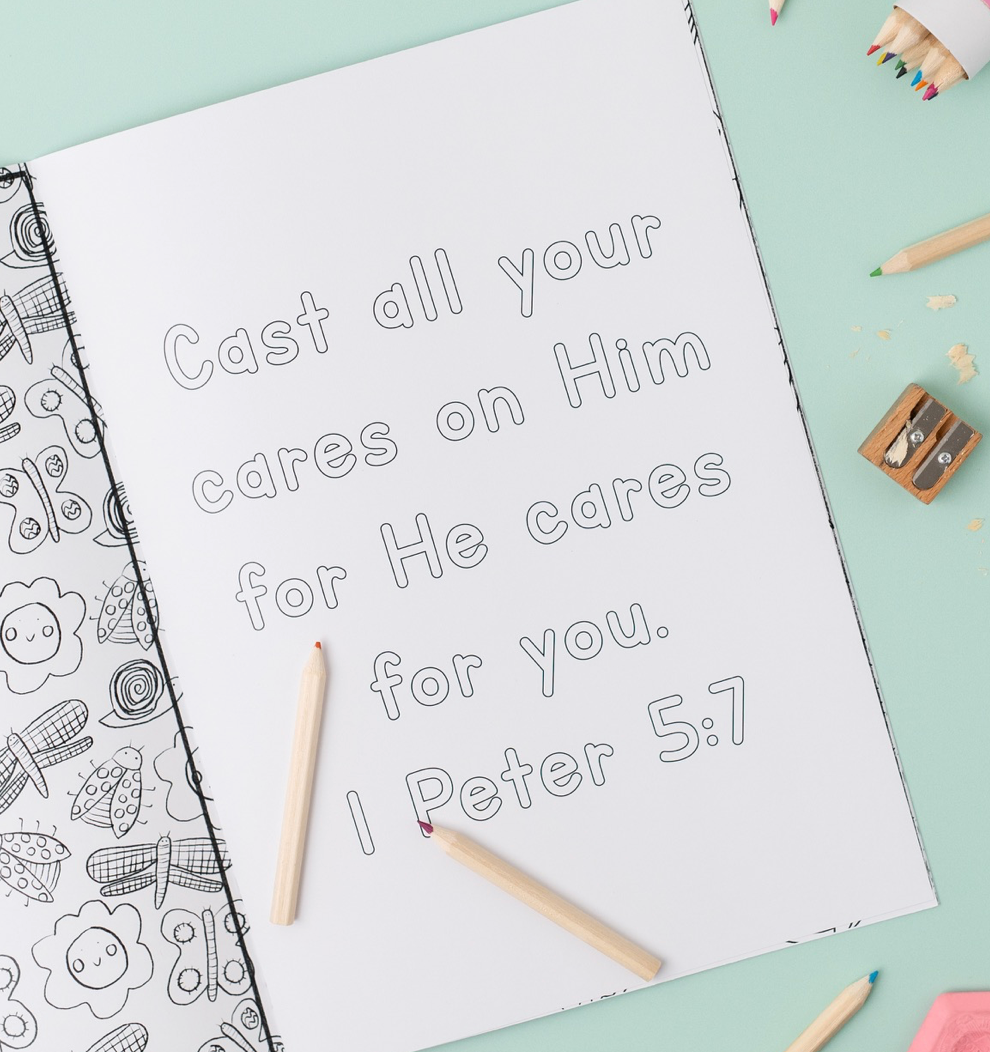 Cast all your
cares on Him
for He cares
for you.
1 Peter 5:7